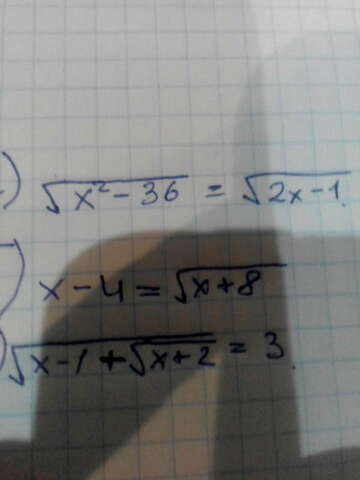 ) √(x² - 36) = √(2x - 1).
) x - 4 = √(x + 8)
) √(x - 1 + √(x + 2)) = 3.